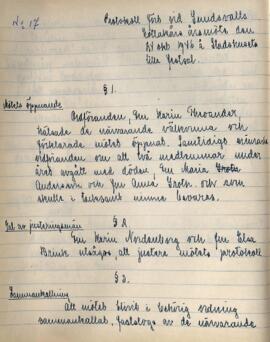 No 17
Protokoll förd vid Sundsvalls
Kollakårs årsmöte den
24 okt 1946 å Stadshusets
lilla festsal.
§ 1.
Mötets öppnande
Ordföranden, Fru Karin Thelander,
hälsade de närvarande välkomna och
förklarade mötet öppnat. Samtidigt erinrade
ordföranden om att två medlemmar under
året avgått med döden, Fru Maria
Andersson och Fru Anna och som
skulle i tacksamt minne bevaras.
Val av justeringsmän
§ 2.
Fru Karin Nordenberg och Fru Elsa
Brunk utsågos att justera mötets protokoll
§ 3.
Sammankallning
Att mötet blivit i behörig ordning
sammankallat, godtogs av de närvarande